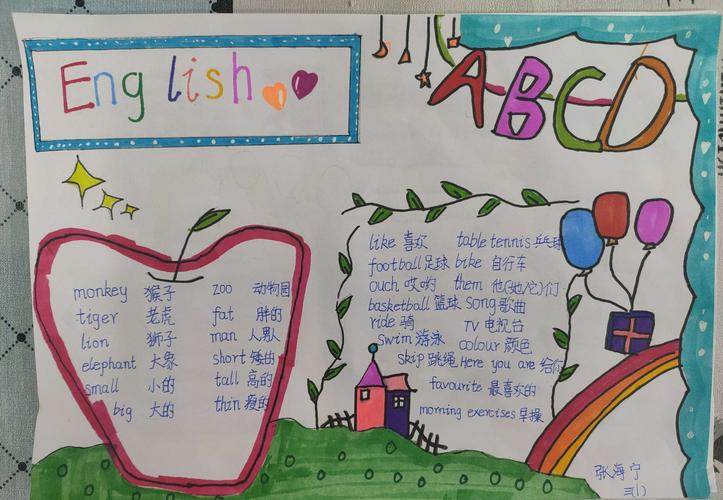 English
ABCD
monkey 猴子 zoo 动物园
tiger 老虎 fat 胖的
lion 狮子 man 人,男人
elephant 大象 short 矮的
small 小的 tall 高的
big 大的 thin 瘦的
like 喜欢 table tennis 乒乓球
football 足球 bike 自行车
ouch 哎哟 them 他(她/它)们
basketball 篮球 song 歌曲
ride 骑 TV 电视台
swim 游泳 colour 颜色
skip 跳绳 Here you are 给你
favourite 最喜欢的
morning exercises 早操
张海宁
三(1)